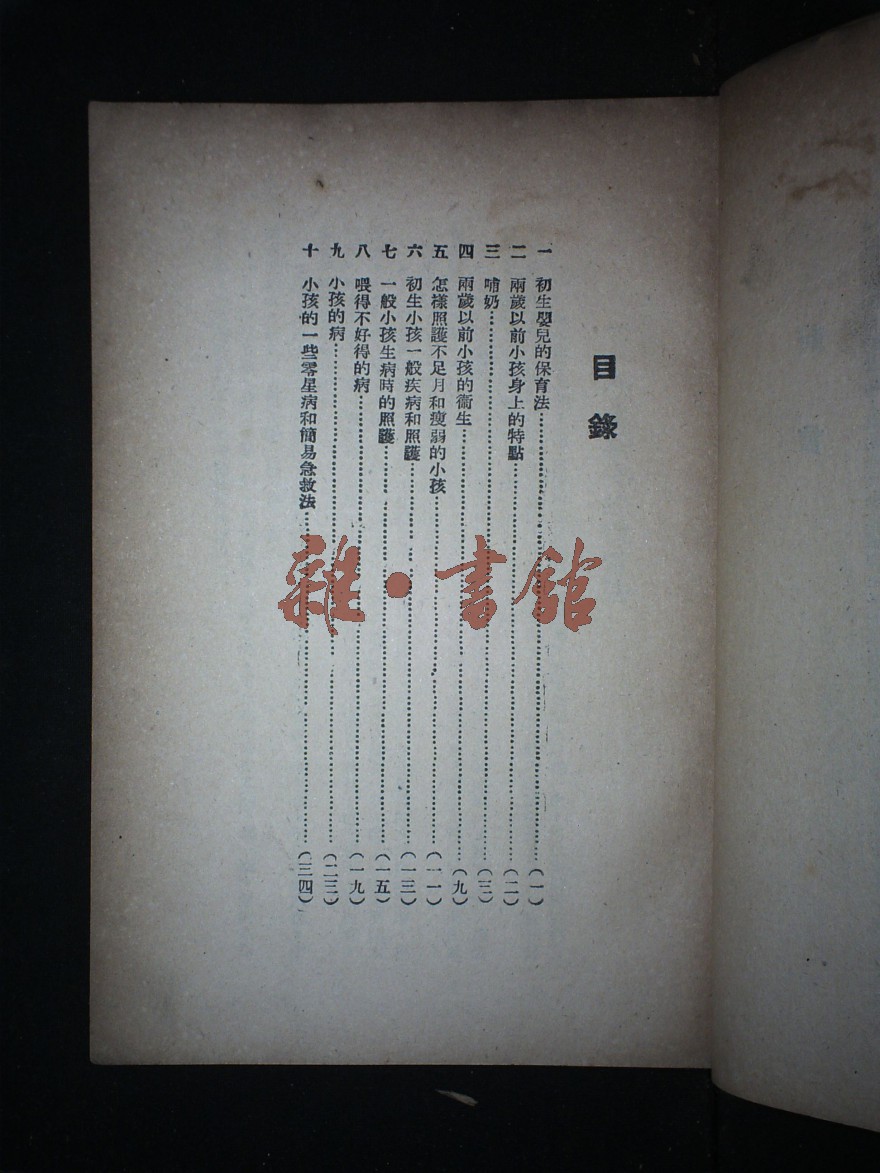 目錄
一 初生嬰兒的保育法……(一)
二 兩歲以前小孩身上的特點……(二)
三 哺奶……(三)
四 兩歲以前小孩的衞生……(九)
五 怎樣照護不足月和瘦弱的小孩……(一一)
六 初生小孩一般疾病和照護……(一三)
七 一般小孩生病時的照護……(一五)
八 喂得不好得的病……(一九)
九 小孩的病……(二三)
十 小孩的一些零星病和簡易急救法……(三四)
雜·書館